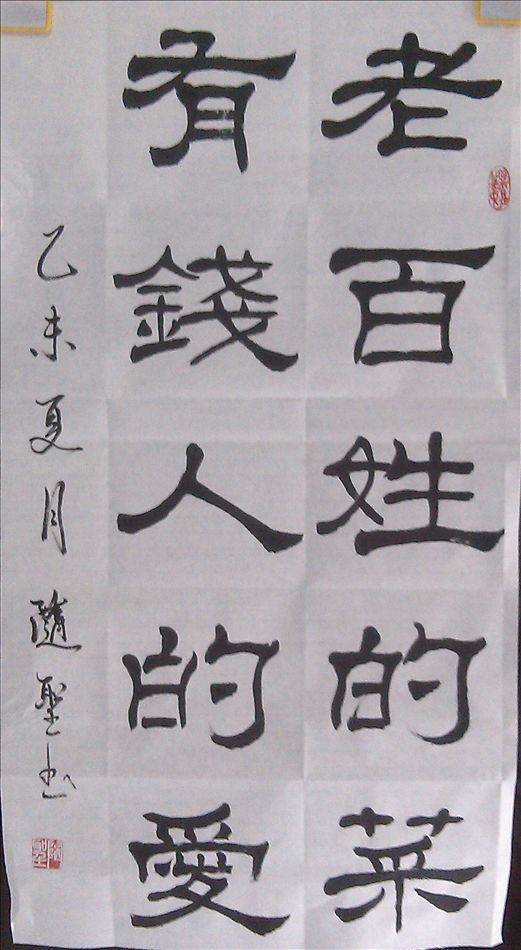 老百姓的菜
有錢人的愛
乙未夏月隨聖书